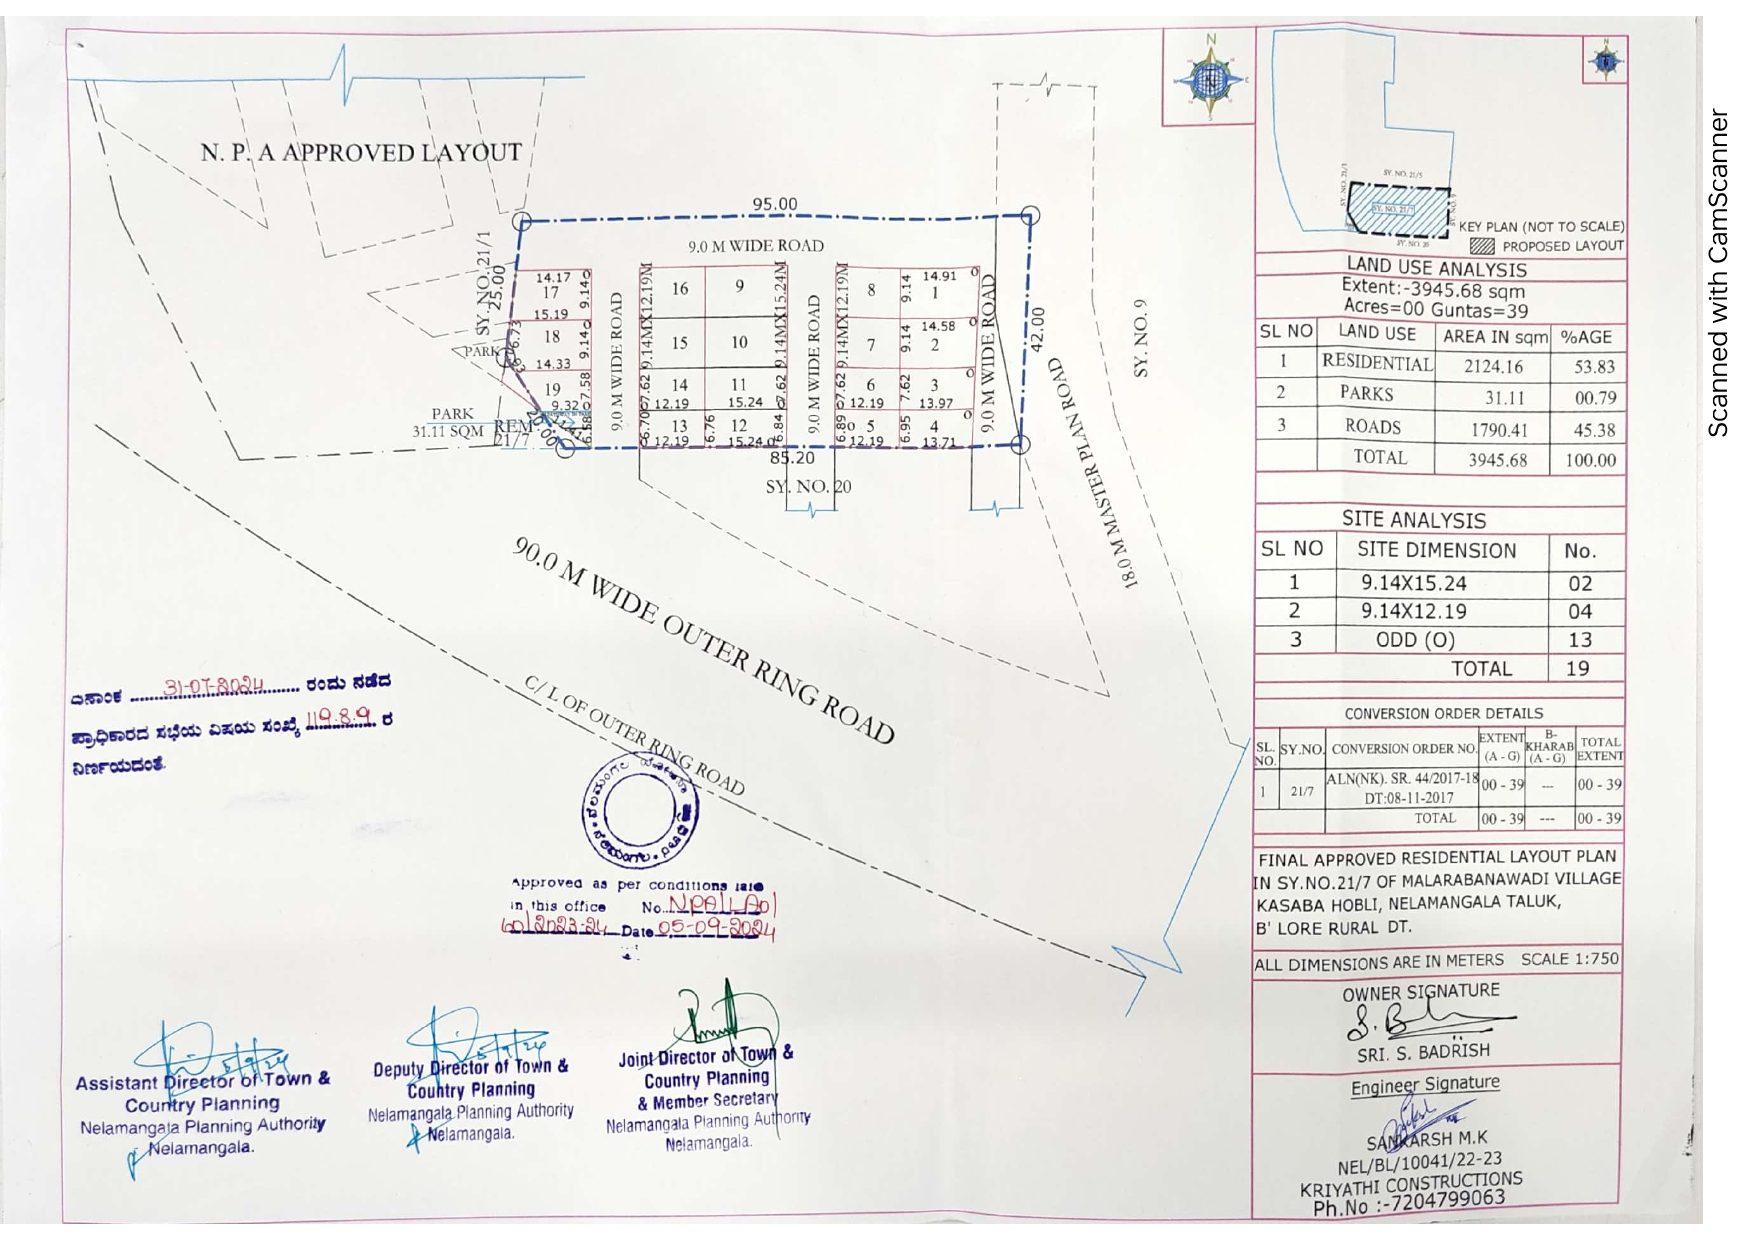 N. P. A APPROVED LAYOUT
95.00
9.0 M WIDE ROAD
SY. NO. 21/1
25.00
14.17
17
9.14
15.19
18
9.14
14.33
19
7.58
9.32
6.58
6.73
PARK
PARK
31.11 SQM
REM.
21/7
9.0 M WIDE ROAD
9.14MX12.19M
16
9
9.14MX15.24M
15
10
7.62
14
11
7.62
12.19
15.24
6.70
13
6.76
12
6.84
12.19
15.24
9.0 M WIDE ROAD
9.14MX12.19M
8
9.14
14.91
1
7
9.14
14.58
2
7.62
6
7.62
3
12.19
13.97
6.89
5
6.95
4
12.19
13.71
9.0 M WIDE ROAD
42.00
85.20
SY. NO. 20
18.0 M MASTER PLAN ROAD
SY. NO. 9
90.0 M WIDE OUTER RING ROAD
C/L OF OUTER RING ROAD
ದಿನಾಂಕ 31-07-2024 ರಂದು ನಡೆದ
ಪ್ರಾಧಿಕಾರದ ಸಭೆಯ ವಿಷಯ ಸಂಖ್ಯೆ 119.8.9. ರ
ನಿರ್ಣಯದಂತೆ.
Approved as per conditions
in this office No. NPA/LAO/
60/2023-24 Date 05-09-2024
5/9/24
Assistant Director of Town &
Country Planning
Nelamangala Planning Authority
Nelamangala.
5/9/24
Deputy Director of Town &
Country Planning
Nelamangala Planning Authority
Nelamangala.
Joint Director of Town &
Country Planning
& Member Secretary
Nelamangala Planning Authority
Nelamangala.
N
N
SY. NO. 21/1
SY. NO. 21/5
SY. NO. 21/7
SY. NO. 20
KEY PLAN (NOT TO SCALE)
PROPOSED LAYOUT
LAND USE ANALYSIS
Extent:-3945.68 sqm
Acres=00 Guntas=39
SL NO LAND USE AREA IN sqm %AGE
1 RESIDENTIAL 2124.16 53.83
2 PARKS 31.11 00.79
3 ROADS 1790.41 45.38
TOTAL 3945.68 100.00
SITE ANALYSIS
SL NO SITE DIMENSION No.
1 9.14X15.24 02
2 9.14X12.19 04
3 ODD (O) 13
TOTAL 19
CONVERSION ORDER DETAILS
SL. NO. SY.NO. CONVERSION ORDER NO. EXTENT (A - G) B-KHARAB (A - G) TOTAL EXTENT
1 21/7 ALN(NK). SR. 44/2017-18 00 - 39 --- 00 - 39
DT:08-11-2017
TOTAL 00 - 39 --- 00 - 39
FINAL APPROVED RESIDENTIAL LAYOUT PLAN
IN SY.NO.21/7 OF MALARABANAWADI VILLAGE
KASABA HOBLI, NELAMANGALA TALUK,
B' LORE RURAL DT.
ALL DIMENSIONS ARE IN METERS SCALE 1:750
OWNER SIGNATURE
SRI. S. BADRISH
Engineer Signature
SANKARSH M.K
NEL/BL/10041/22-23
KRIYATHI CONSTRUCTIONS
Ph.No :-7204799063
Scanned with CamScanner